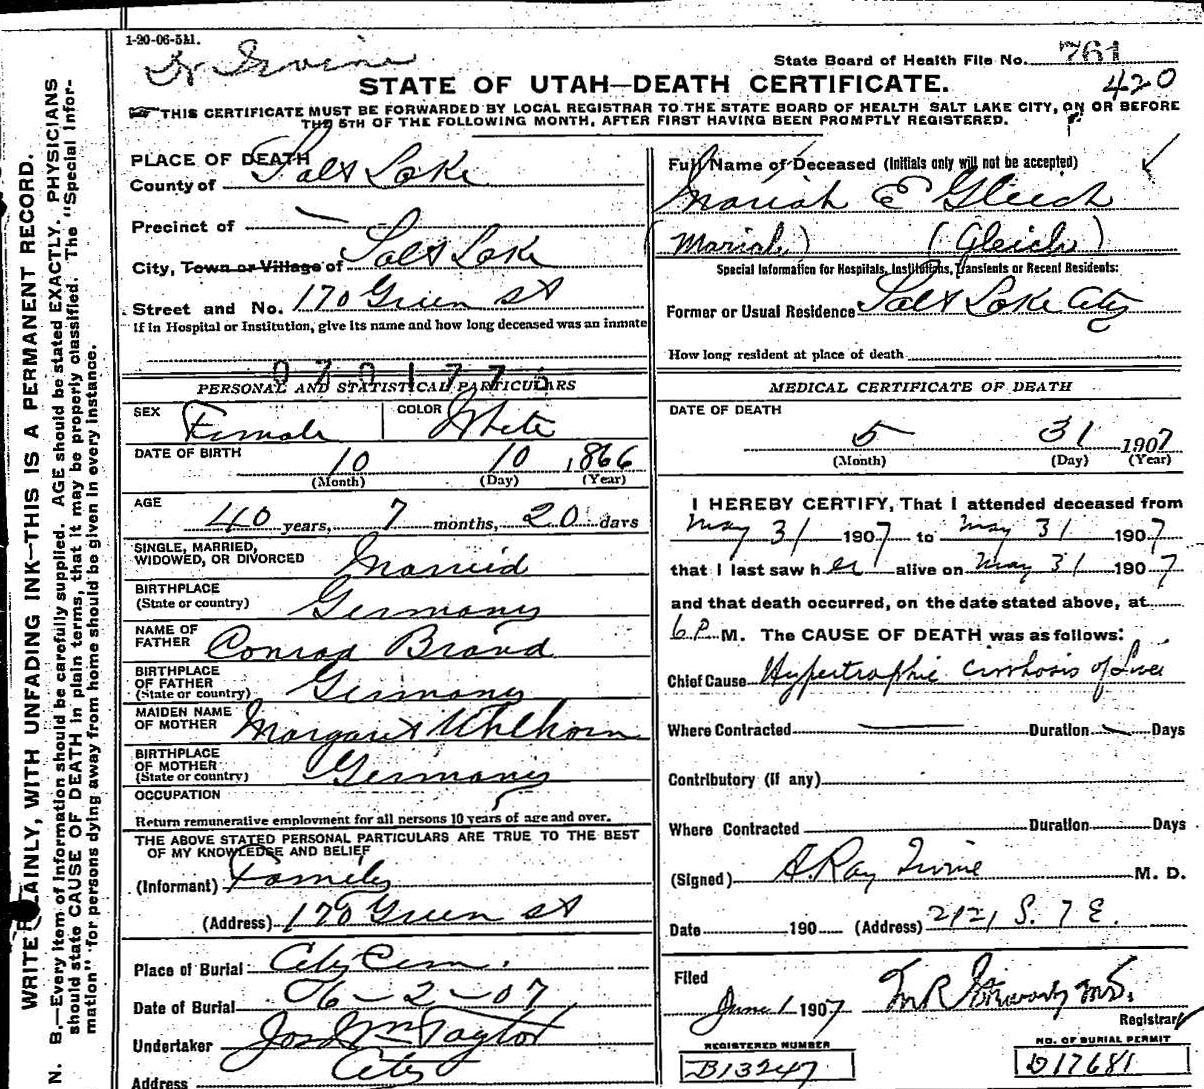 WRITE PLAINLY, WITH UNFADING INK—THIS IS A PERMANENT RECORD.
N. B.—Every item of information should be carefully supplied. AGE should be stated EXACTLY. PHYSICIANS
should state CAUSE OF DEATH in plain terms, that it may be properly classified. The "Special Infor-
mation" for persons dying away from home should be given in every instance.
1-20-06-5M.
Dr Irvine
State Board of Health File No. 761
420
STATE OF UTAH—DEATH CERTIFICATE.
THIS CERTIFICATE MUST BE FORWARDED BY LOCAL REGISTRAR TO THE STATE BOARD OF HEALTH SALT LAKE CITY, ON OR BEFORE
THE 5TH OF THE FOLLOWING MONTH, AFTER FIRST HAVING BEEN PROMPTLY REGISTERED.
PLACE OF DEATH
County of Salt Lake
Precinct of —
City, Town or Village of Salt Lake
Street and No. 170 Green st
If in Hospital or Institution, give its name and how long deceased was an inmate
PERSONAL AND STATISTICAL PARTICULARS
SEX Female COLOR White
DATE OF BIRTH 10 10 1866
(Month) (Day) (Year)
AGE 40 years, 7 months, 20 days
SINGLE, MARRIED,
WIDOWED, OR DIVORCED Married
BIRTHPLACE
(State or country) Germany
NAME OF
FATHER Conrad Brand
BIRTHPLACE
OF FATHER
(State or country) Germany
MAIDEN NAME
OF MOTHER Margaret Uhlhorn
BIRTHPLACE
OF MOTHER
(State or country) Germany
OCCUPATION
Return remunerative employment for all persons 10 years of age and over.
THE ABOVE STATED PERSONAL PARTICULARS ARE TRUE TO THE BEST
OF MY KNOWLEDGE AND BELIEF
(Informant) Family
(Address) 170 Green st
Place of Burial: City Cem.
Date of Burial 06-2-07
Undertaker Jos Wm Taylor
Address City
Full Name of Deceased (Initials only will not be accepted)
Mariah E Gleich
(Mariah) (Gleich)
Special Information for Hospitals, Institutions, Transients or Recent Residents:
Former or Usual Residence Salt Lake City
How long resident at place of death
MEDICAL CERTIFICATE OF DEATH
DATE OF DEATH
5 31 1907
(Month) (Day) (Year)
I HEREBY CERTIFY, That I attended deceased from
May 31 1907 to May 31 1907
that I last saw her alive on May 31 1907
and that death occurred, on the date stated above, at
6 P. M. The CAUSE OF DEATH was as follows:
Chief Cause Hypertrophic cirrhosis of Liver
Where Contracted — Duration — Days
Contributory (if any)
Where Contracted Duration Days
(Signed) A. Ray Irvine M. D.
Date 190 (Address) 212 S. 7 E.
Filed
June 1 1907 M.D.
Registrar
REGISTERED NUMBER
B13247
NO. OF BURIAL PERMIT
D17681